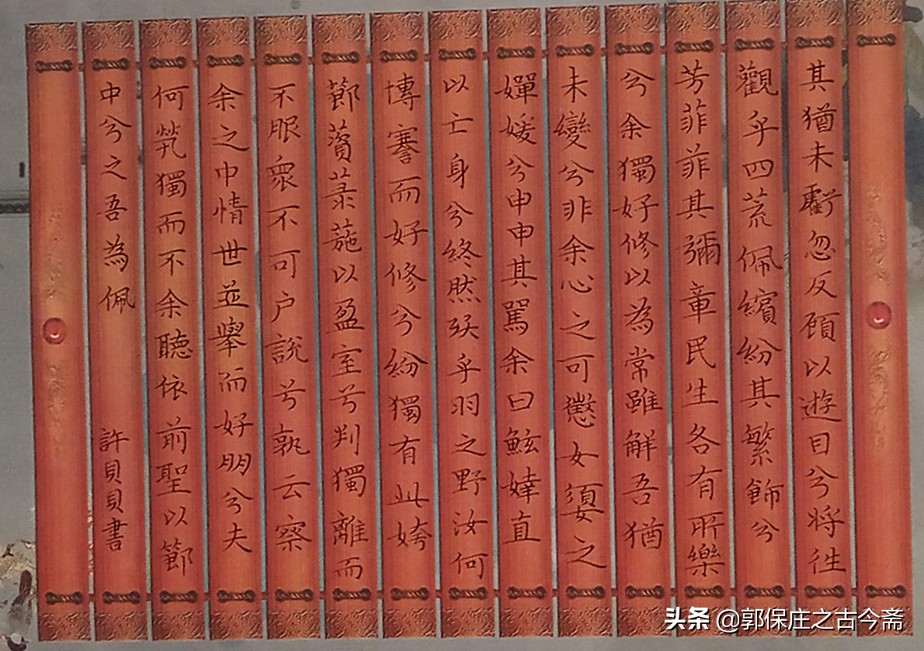 其猶未虧忽反顧以遊目兮将往
觀乎四荒佩繽紛其繁飾兮
芳菲菲其彌章民生各有所樂
兮余獨好修以為常雖解吾猶
未變兮非余心之可懲女嬃之
嬋媛兮申申其罵余曰鮌婞直
以亡身兮終然殀乎羽之野汝何
博謇而好修兮紛獨有此姱
節薋菉葹以盈室兮判獨離而
不服眾不可户說兮孰云察
余之中情世並舉而好朋兮夫
何煢獨而不余聽依前聖以節
中兮之吾為佩
許貝貝書
头条 @郭保庄之古今斋